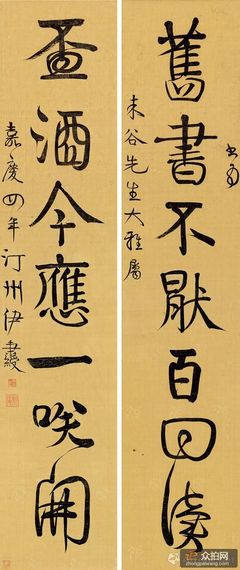 舊書不厭百回讀
書為
未谷先生大雅屬
盃酒今應一咲開
嘉慶四年汀州伊秉綬
众拍网
zhongpaiwang.com